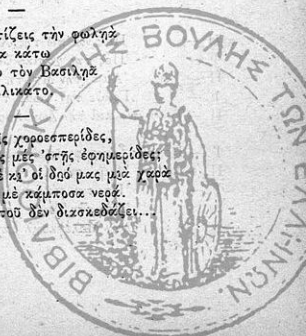 τίζεις τὴν φωληὰ
α κάτω
τὸν Βασιληᾶ
λικάτο.
χοροεσπερίδες,
ς μὲς 'στῆς ἐφημερίδες;
κι' οἱ δυό μας μιὰ χαρὰ
μὲ κάμποσα νερά.
ποῦ δὲν διασκεδάζει...
ΒΙΒΛ ΚΗ ΤΗΣ ΒΟΥΛΗΣ ΤΩΝ Ε ΗΝΩΝ